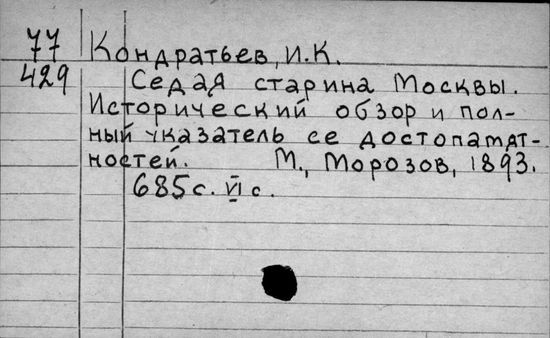 77 Кондратьев, И.К.
429 Седая старина Москвы.
Исторический обзор и пол-
ный указатель се достопамят-
ностей. М., Морозов, 1893.
685 с. VI с.